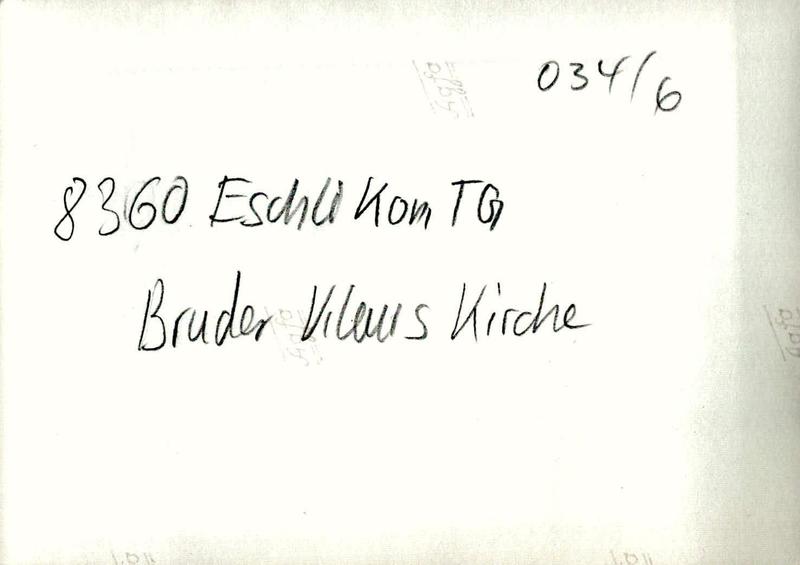 034/6
8360 Eschlikon TG
Bruder Klaus Kirche